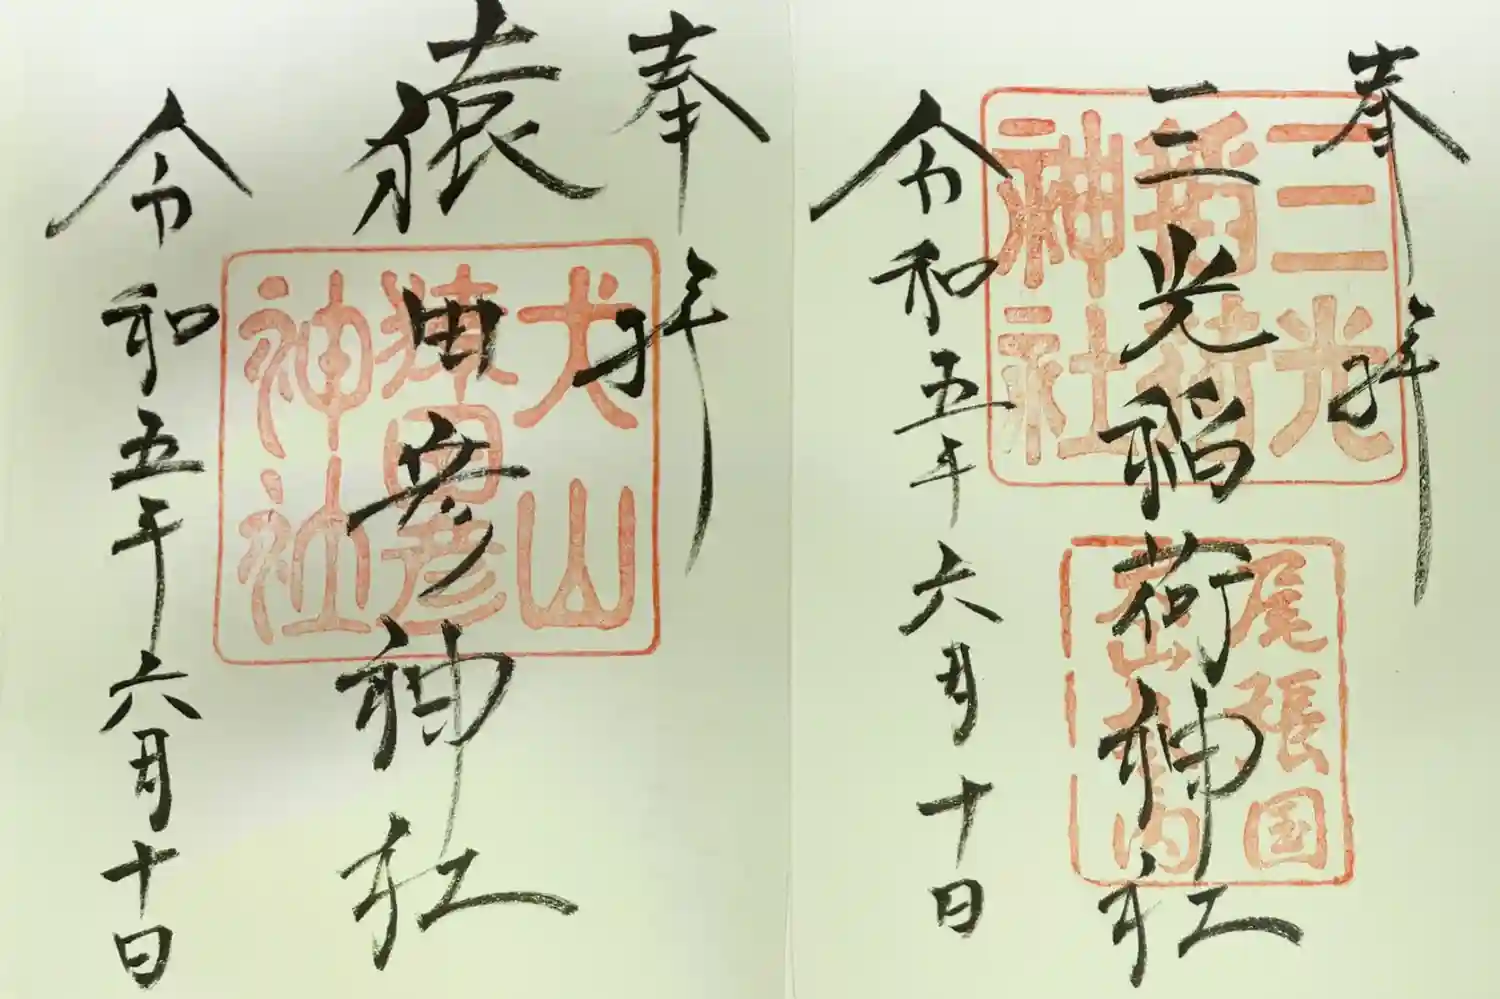 奉拝
三光稲荷神社
令和五年六月十日
三光
稲荷
神社
尾張国
犬山城内
奉拝
猿田彦神社
令和五年六月十日
犬山
猿田彦
神社